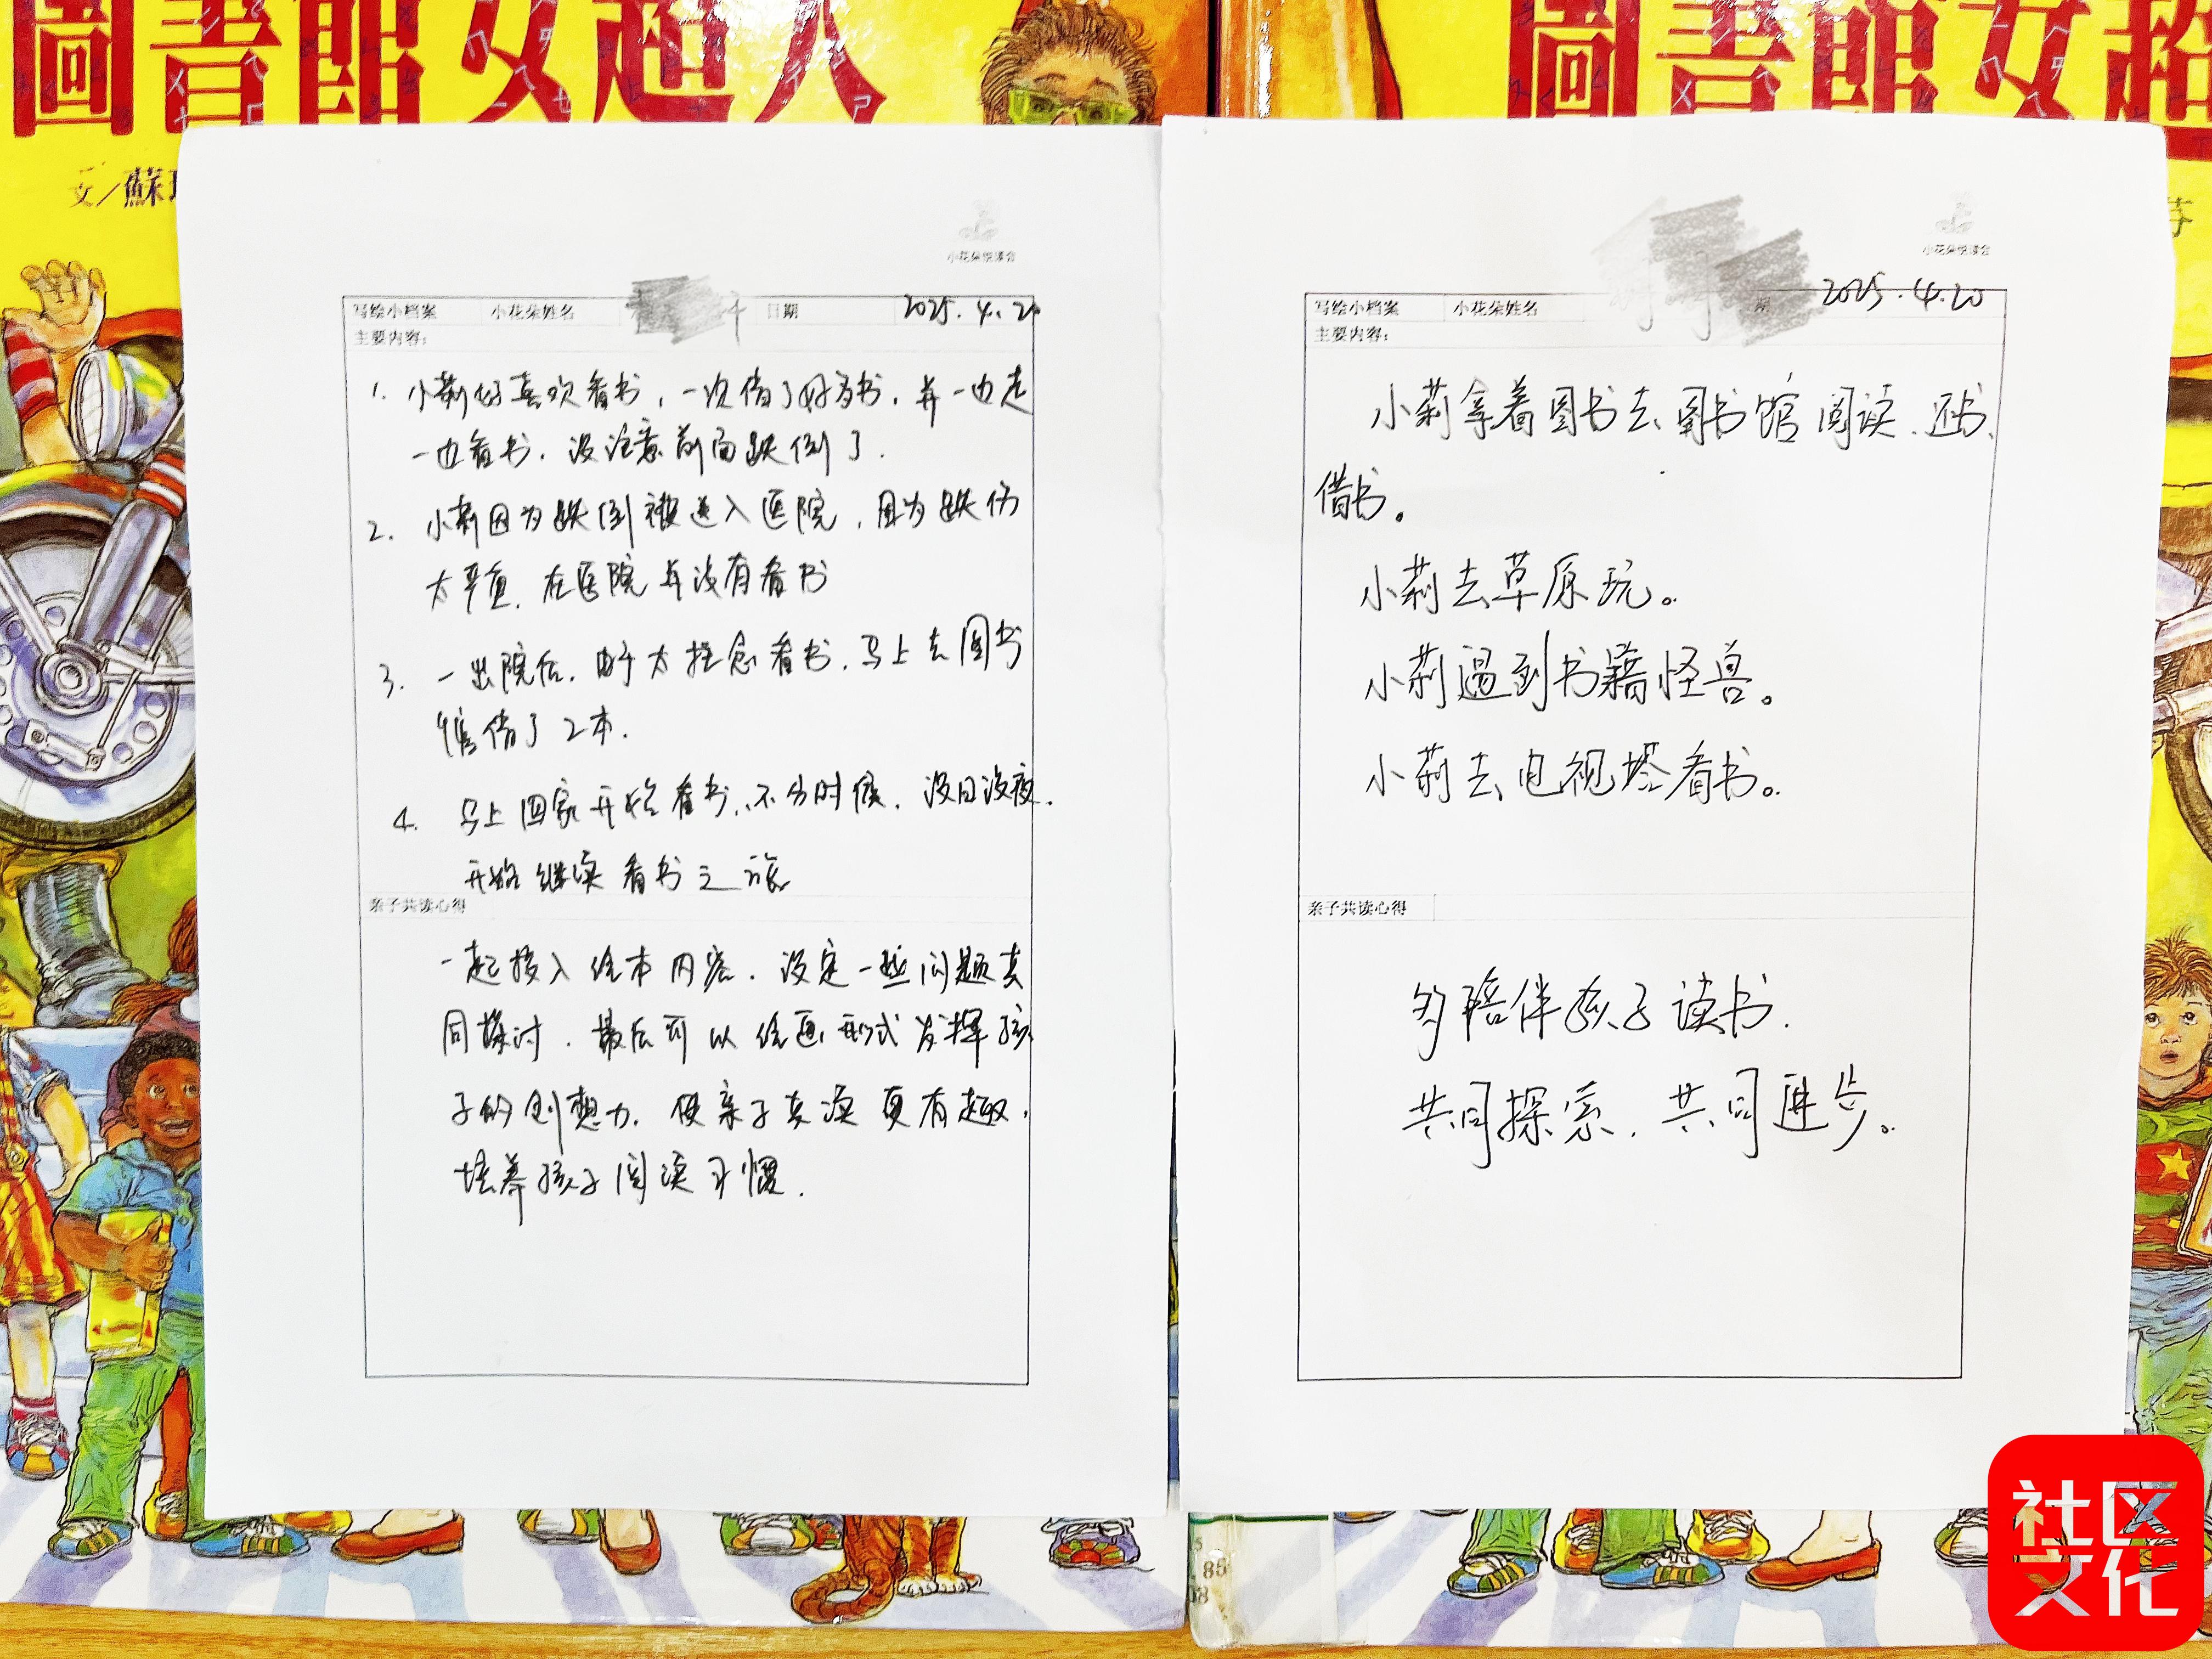 圖書館女超人
文／蘇
圖書館女超
小花朵悦读会
写绘小档案 小花朵姓名 日期 2025.4.20
主要内容：
1. 小莉好喜欢看书，一次借了好多书，并一边走
一边看书，没注意前面跌倒了.
2. 小莉因为跌倒被送入医院，因为跌伤
太严重，在医院并没有看书
3. 一出院后，由于太挂念看书，马上去图书
馆借了2本.
4. 马上回家开始看书，不分时候，没日没夜.
开始继续看书之旅
亲子共读心得
一起投入绘本内容，设定一些问题共
同探讨，最后可以绘画形式发挥孩
子的创想力，使亲子共读更有趣，
培养孩子阅读习惯.
小花朵悦读会
写绘小档案 小花朵姓名 期 2025.4.20
主要内容：
小莉拿着图书去图书馆阅读、还书、
借书。
小莉去草原玩。
小莉遇到书籍怪兽。
小莉去电视塔看书。
亲子共读心得
多陪伴孩子读书.
共同探索，共同进步。
85
社区
文化